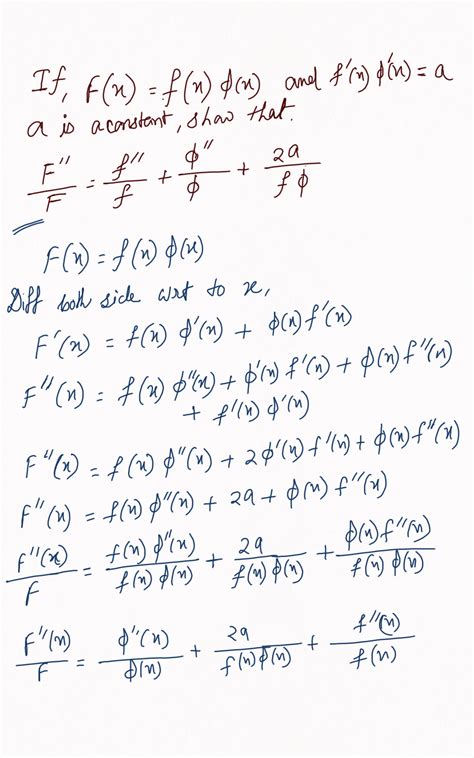 If, F(x) = f(x) ϕ(x) and f'(x) ϕ'(x) = a
a is a constant, show that.
F''/F = f''/f + ϕ''/ϕ + 2a/fϕ
F(x) = f(x) ϕ(x)
Diff both side wrt to x,
F'(x) = f(x) ϕ'(x) + ϕ(x) f'(x)
F''(x) = f(x) ϕ''(x) + ϕ'(x) f'(x) + ϕ(x) f''(x)
+ f'(x) ϕ'(x)
F''(x) = f(x) ϕ''(x) + 2ϕ'(x) f'(x) + ϕ(x) f''(x)
F''(x) = f(x) ϕ''(x) + 2a + ϕ(x) f''(x)
F''(x)/F = f(x) ϕ''(x)/f(x) ϕ(x) + 2a/f(x) ϕ(x) + ϕ(x) f''(x)/f(x) ϕ(x)
F''(x)/F = ϕ''(x)/ϕ(x) + 2a/f(x) ϕ(x) + f''(x)/f(x)